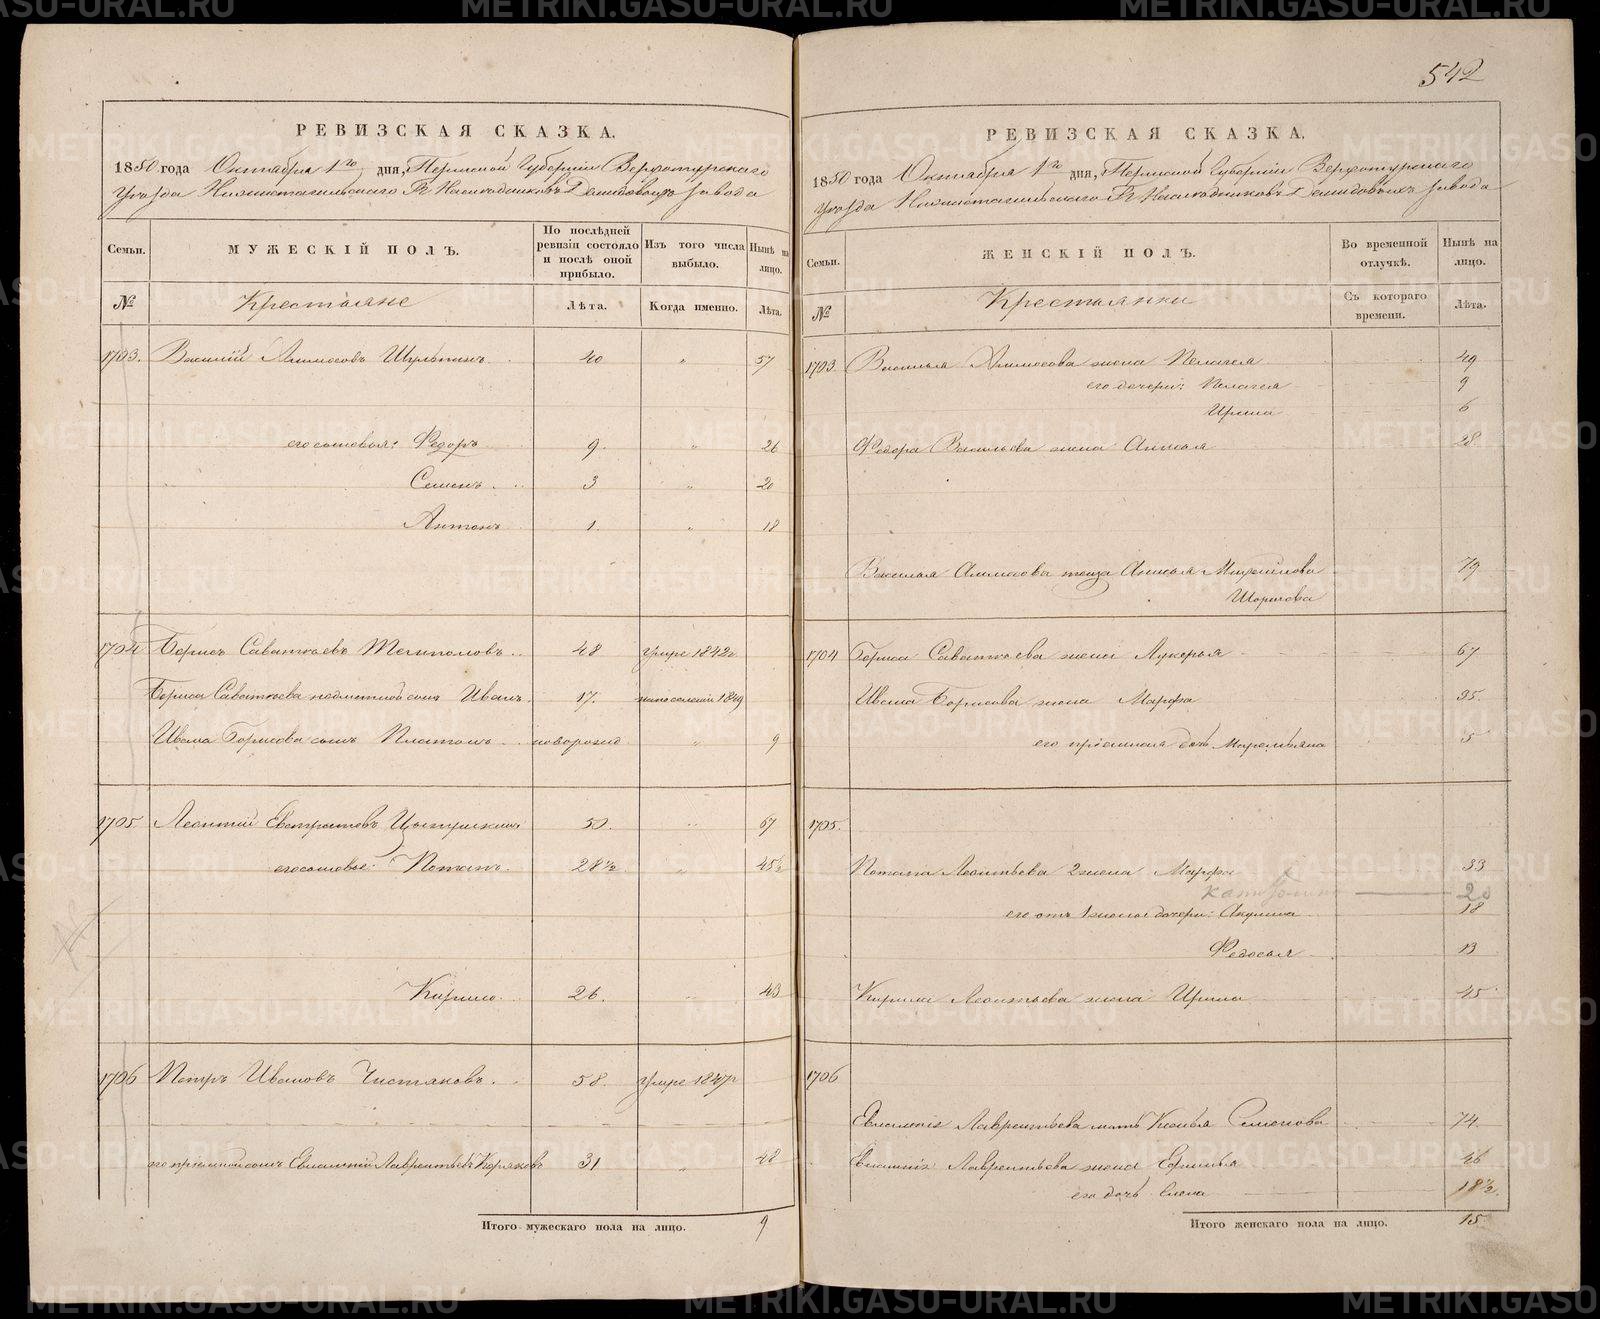 542
РЕВИЗСКАЯ СКАЗКА.
1850 года Октября 1го дня, Пермской Губерніи Верхотурскаго
Уѣзда Нижнетагильскаго Гг. Наслѣдниковъ Демидовыхъ завода
Семьи.
МУЖЕСКІЙ ПОЛЪ.
По послѣдней ревизіи состояло и послѣ оной прибыло.
Изъ того числа выбыло.
Нынѣ на лицо.
№
Крестьяне
Лѣта.
Когда именно.
Лѣта.
1703. Василій Шульпинъ 40 " 57
его сыновья: Федоръ 9. " 26
Семенъ 3 " 20
Антонъ 1. " 18
1704 Борисъ Саватѣевъ 48 Умре 1842г
Бориса Саватѣева сынъ Иванъ 17. 1849
Ивана Борисова сынъ Платонъ новорожд " 9
1705. Леонтій Евстратовъ 50. " 67
его сыновья: Потапъ 28½ " 45½
Кирило 26. " 43
1706 Петръ Ивановъ Чистяковъ. 58. Умре 1847г
его пріемной сынъ Евлампій Лаврентьевъ Коряковъ 31 " 48
Итого мужескаго пола на лицо. 9
РЕВИЗСКАЯ СКАЗКА.
1850 года Октября 1го дня, Пермской Губерніи Верхотурскаго
Уѣзда Нижнетагильскаго Гг. Наслѣдниковъ Демидовыхъ завода
Семьи.
ЖЕНСКІЙ ПОЛЪ.
Во временной отлучкѣ.
Нынѣ на лицо.
№
Крестьянки
Съ котораго времени.
Лѣта.
1703. Василья жена Пелагея 49
его дочери: Пелагея 9
Ирина 6
Федора Васильева жена Анисья 28.
Василья теща Анисья 79
1704 Бориса Саватѣева жена Лукерья 67
Ивана Борисова жена Марфа 35.
его пріемная дочь 5
1705.
Потапа Леонтьева 2 жена Марфа 33
20
его отъ 1 жены дочери: Акулина 18
Федосья 13
Кирила Леонтьева жена Ирина 45
1706
Евлампія Лаврентьева мать Семенова 74
Евлампія Лаврентьева жена 46
его дочь Елена 18½.
Итого женскаго пола на лицо. 15.
METRIKI.GASO-URAL.RU